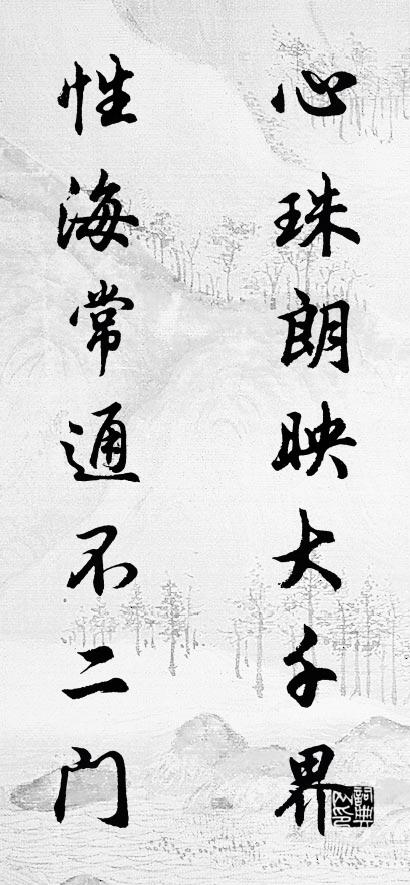 心珠朗映大千界
性海常通不二门